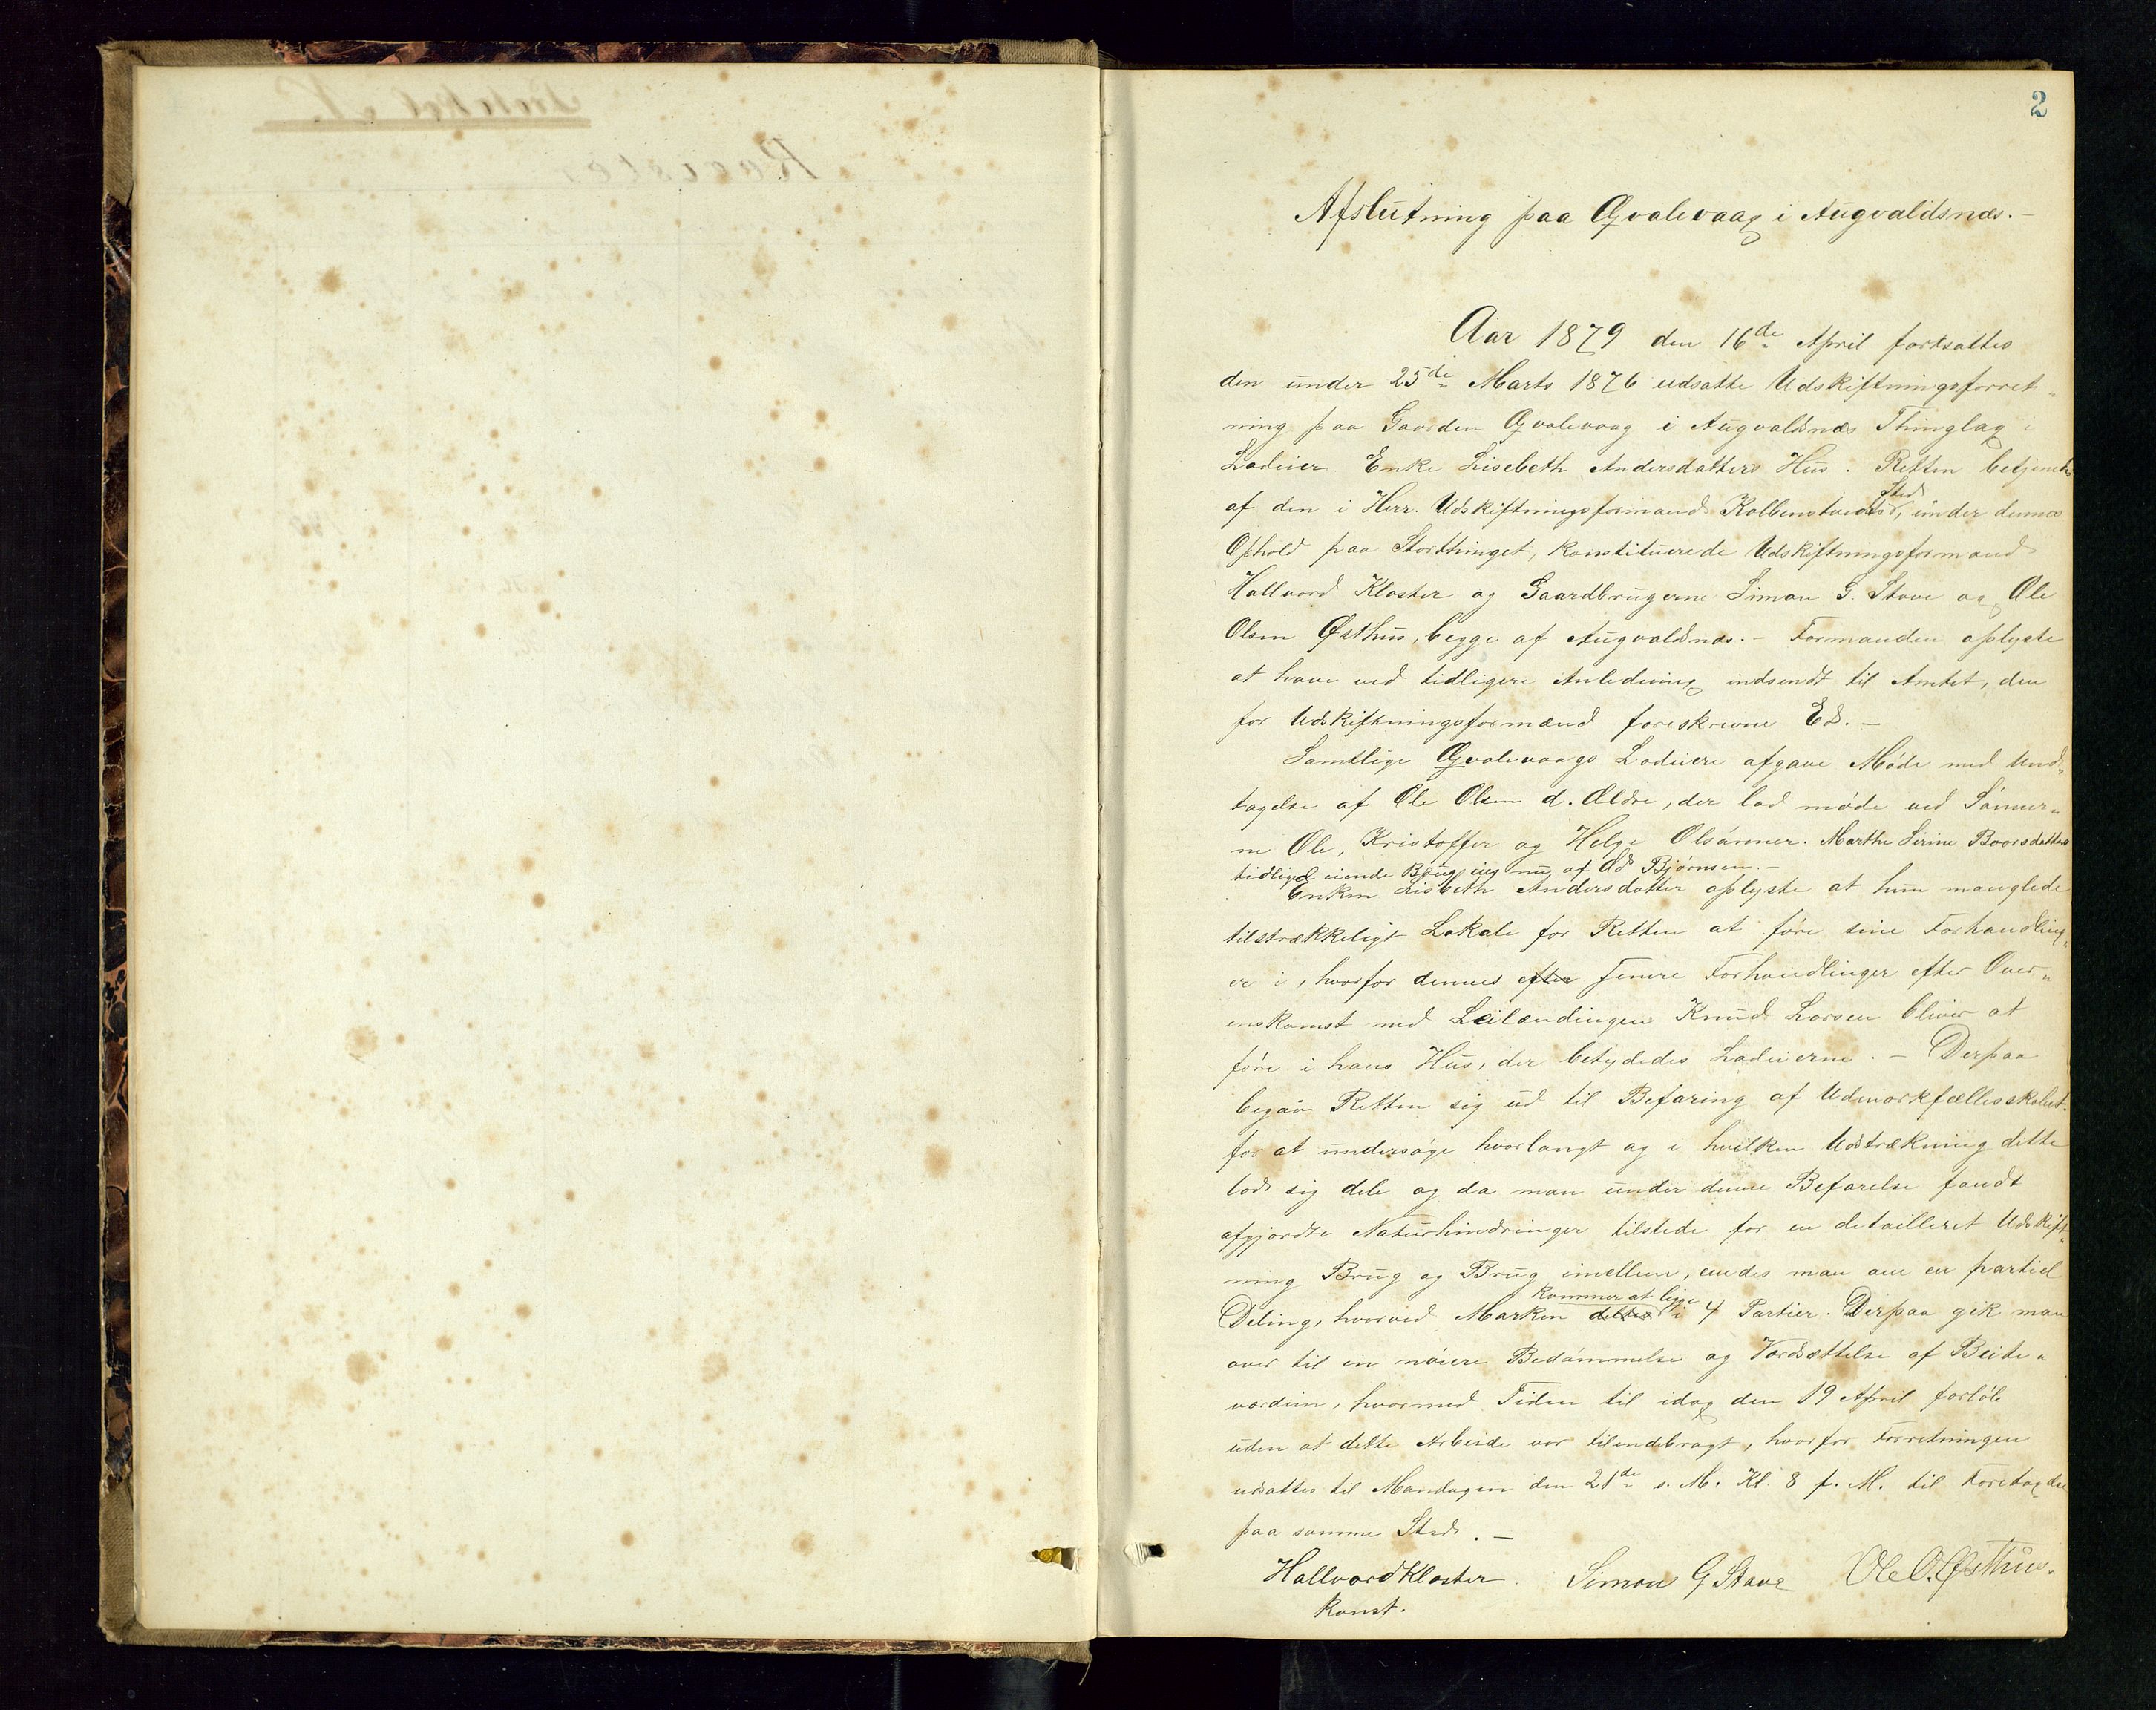 2
Afslutning paa Qvalevaag i Augvaldsnæs.-
Aar 1879 den 16de April fortsattes
den under 25de Marts 1876 udsatte Udskiftningsforret-
ning paa Gaarden Qvalevaag i Augvaldsnæs Thinglag i
Lodeier Enke Lisebeth Andersdatters Hus. Retten betjentes
af den i Herr. Udskiftningsformand Kolbenstvedts Sted, under dennes
Ophold paa Storthinget, konstituerede Udskiftningsformand
Hallvard Kloster og Gaardbrugerne Simon G. Stave og Ole
Olsen Østhus, begge af Augvaldsnæs.- Formanden oplyste
at have ved tidligere Anledning indsendt til Amtet, den
for Udskiftningsformænd foreskrevne Ed.-
Samtlige Qvalevaags Lodeiere afgave Møde med Und-
tagelse af Ole Olsen d. Ældre, der lod møde ved Sønner-
ne Ole, Kristoffer og Helge Olsønner. Marthe Serine Baarsdatters
tidligere eiende Brug eies nu af Od Bjørnsen.-
Enken Lisbeth Andersdatter oplyste at hun manglede
tilstrækkeligt Lokale for Retten at føre sine Forhandling-
er i, hvorfor dennes efter Fenere Forhandlinger efter Over-
enskomst med Leilændingen Knud Larsen bliver at
føre i hans Hus, der betydedes Lodeierne.- Derpaa
begav Retten sig ud til Befaring af Udmarkfællesskabet
for at undersøge hvorlangt og i hvilken Udstrækning dette
lod sig dele og da man under denne Befarelse fandt
afgjordte Naturhindringer tilstede for en detailleret Udskift-
ning Brug og Brug imellem, endes man om en partiel
Deling, hvorved Marken deltes kommer at ligge i 4 Partier. Derpaa gik man
over til en nøiere Bedømmelse og Værdsættelse af Beite-
værdien, hvormed Tiden til idag den 19 April forløb
uden at dette Arbeide var tilendebragt, hvorfor Forretningen
udsattes til Mandagen den 21de s. M. Kl. 8 f. M. til Foretagelse
paa samme Sted.-
Hallvard Kloster Simon G Stave Ole O. Østhus.
konst.